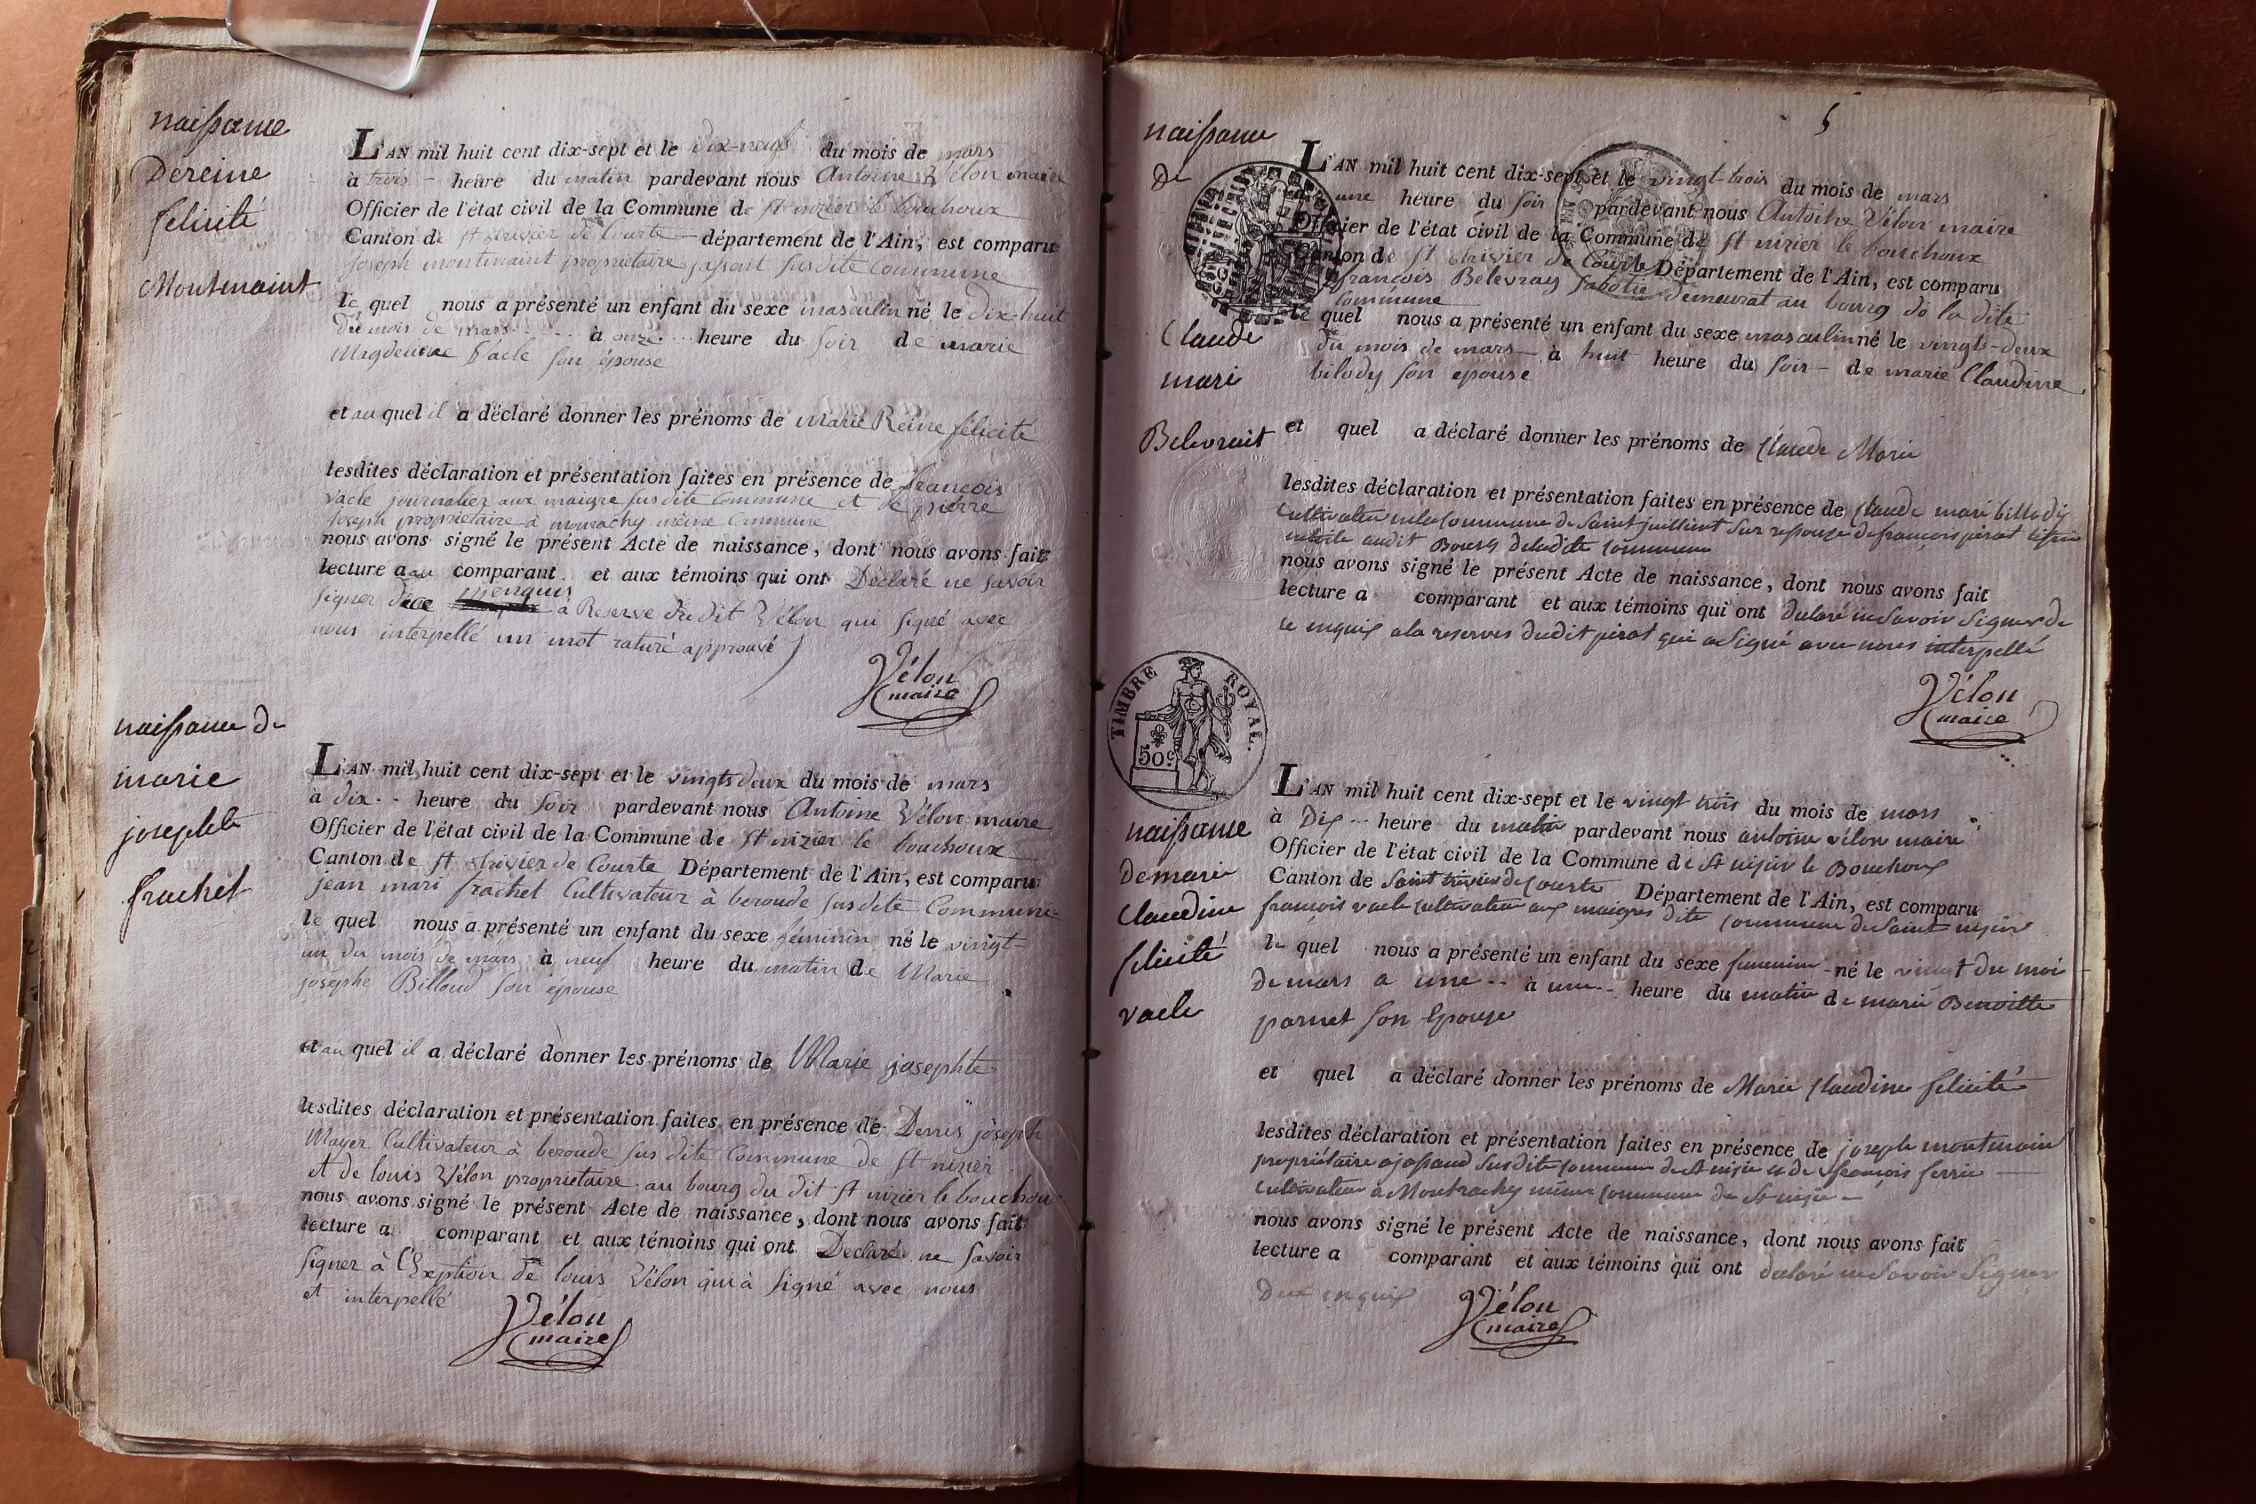 naissance
De reine
felicité
Montmaint
L'AN mil huit cent dix-sept et le dix-neuf du mois de mars
à trois heure du matin pardevant nous Antoine Vélon maire
Officier de l'état civil de la Commune de St nizier le bouchoux
Canton de St trivier de Courte département de l'Ain, est comparu
Joseph montmaint propriétaire susdite Commune
le quel nous a présenté un enfant du sexe masculin né le dix-huit
du mois de mars à onze heure du soir de marie
Magdeleine Vacle son épouse
et au quel il a déclaré donner les prénoms de Marie Reine félicité
lesdites déclaration et présentation faites en présence de françois
vacle journalier aux maigre susdite Commune et de pierre
Joseph propriétaire à même Commune
nous avons signé le présent Acte de naissance, dont nous avons fait
lecture a au comparant et aux témoins qui ont Déclaré ne savoir
signer de ce enquis à Reserve dudit Vélon qui signé avec
nous interpellé un mot raturé approuvé
Vélon
maire
naissance de
marie
josephte
frachet
L'AN mil huit cent dix-sept et le vingts deux du mois de mars
à dix heure du soir pardevant nous Antoine Vélon maire
Officier de l'état civil de la Commune de St nizier le bouchoux
Canton de St trivier de Courte Département de l'Ain, est comparu
jean mari frachet Cultivateur à beroude susdite Commune
le quel nous a présenté un enfant du sexe féminin né le vingt-
un du mois de mars à neuf heure du matin de Marie
josephe Billoud son épouse
et au quel il a déclaré donner les prénoms de Marie josephte
lesdites déclaration et présentation faites en présence de Denis joseph
Mayer Cultivateur à beroude sus dite Commune de St nizier
et de louis Vélon propriétaire au bourg du dit St nizier le bouchoux
nous avons signé le présent Acte de naissance, dont nous avons fait
lecture a comparant et aux témoins qui ont Declaré ne savoir
signer à l'Exeption de louis Vélon qui à signé avec nous
et interpellé
Vélon
maire
5
naissance
De
Claude
mari
Belevrait
L'AN mil huit cent dix-sept et le vingt-trois du mois de mars
une heure du soir pardevant nous Antoine Vélon maire
Officier de l'état civil de la Commune de St nizier le bouchoux
Canton de St trivier de Courte Département de l'Ain, est comparu
françois Belevray sabotie demeurat au bourg de la dite
Commune
le quel nous a présenté un enfant du sexe masculin né le vingts-deux
du mois de mars à huit heure du soir de marie Claudine
bilody son epouse
et quel a déclaré donner les prénoms de Claude Marie
lesdites déclaration et présentation faites en présence de Claude mari billody
Cultivateur Commune de Saint juillient sur ressouze de françois pirat
audit Bourg de ladite Commune
nous avons signé le présent Acte de naissance, dont nous avons fait
lecture a comparant et aux témoins qui ont declaré ne savoir signer de
ce enquis a la reserves dudit pirat qui a signé avec nous interpellé
Vélon
maire
TIMBRE ROYAL.
50c
naissance
De marie
Claudine
félicité
vacle
L'AN mil huit cent dix-sept et le vingt trois du mois de mars
à Dix heure du matin pardevant nous antoine vélon maire
Officier de l'état civil de la Commune de St nizier le Bouchoux
Canton de Saint trivier de Courte Département de l'Ain, est comparu
françois vacle cultivateur aux maigres dite Commune de Saint nizier
le quel nous a présenté un enfant du sexe femenin né le vingt du moi
De mars a une à une heure du matin de marie Benoitte
parnet son Epouse
et quel a déclaré donner les prénoms de Marie Claudine félicité
lesdites déclaration et présentation faites en présence de joseph montmain
propriétaire a jassaud susdite Commune de St nizier et de françois ferrie
Cultivateur à Montrachy même Commune de St nizier
nous avons signé le présent Acte de naissance, dont nous avons fait
lecture a comparant et aux témoins qui ont declaré ne savoir signer
De ce enquis
Vélon
maire